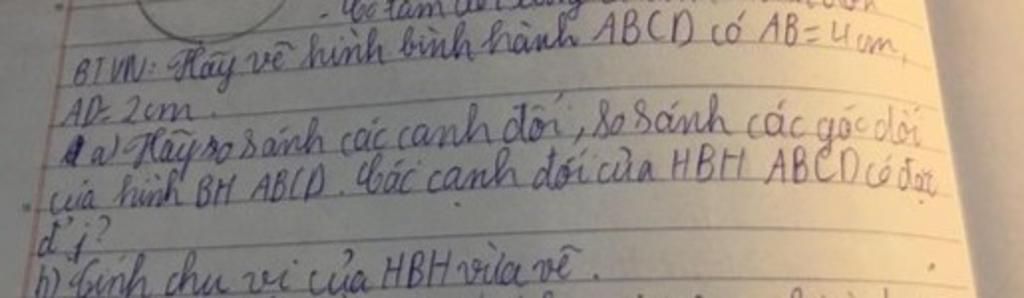 BTVN: Hãy vẽ hình bình hành ABCD có AB = 4cm,
AD = 2cm.
a) Hãy so sánh các cạnh đối, so sánh các góc đối
của hình BH ABCD. Các cạnh đối của HBH ABCD có đặc
đ' j?
b) Tính chu vi của HBH vừa vẽ.